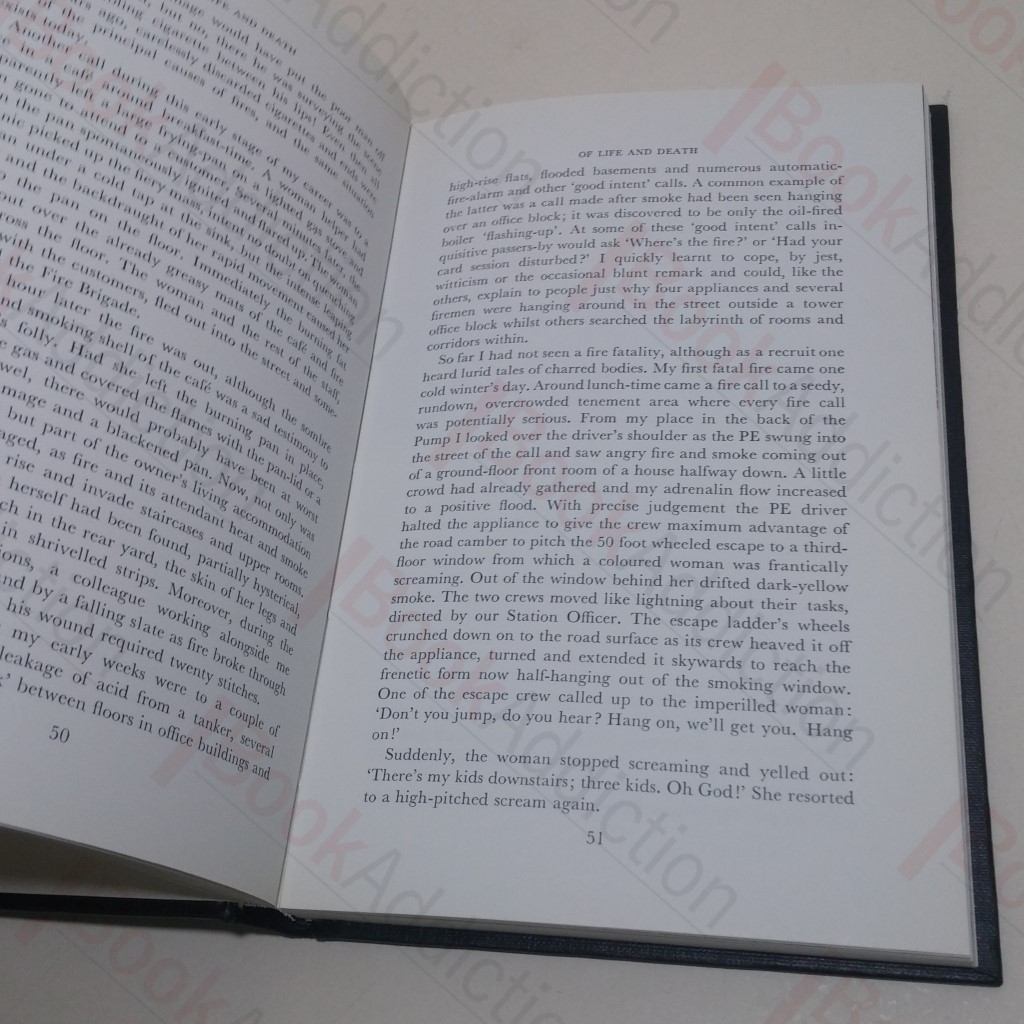 OF LIFE AND DEATH
mage would have put the poor man off
, but no, there he was surveying the scene
cigarette between his lips! Even then, all
ars ago, carelessly discarded cigarettes and ends were
of the principal causes of fires, and the same situation
exists today.
Another call during this early stage of my career was to a
in a café around breakfast-time. A woman helper had
parently left a large frying-pan on a lighted gas stove and
gone to attend to a customer. Several minutes later, the
the pan spontaneously ignited and flared up. The woman
nic picked up the fiery mass intent no doubt on quenching
under a cold tap at the sink, but the intense leaping
and the backdraught of her rapid movement caused her
the pan on the floor. Immediately the burning fat
out over the already greasy mats of the café and fire
ross the floor. The woman and the rest of the staff,
with the customers, fled out into the street and some-
the Fire Brigade.
hour later the fire was out, although the sombre
nd smoking shell of the café was a sad testimony to
s folly. Had she left the burning pan in place,
e gas and covered the flames with the pan-lid or a
wel, there would probably have been at worst
mage and a blackened pan. Now, not only was
but part of the owner's living accommodation
aged, as fire and its attendant heat and smoke
rise and invade staircases and upper rooms.
herself had been found, partially hysterical,
ch in the rear yard, the skin of her legs and
in shrivelled strips. Moreover, during the
ions, a colleague working alongside me
nd by a falling slate as fire broke through
his wound required twenty stitches.
my early weeks were to a couple of
leakage of acid from a tanker, several
' between floors in office buildings and
50
OF LIFE AND DEATH
high-rise flats, flooded basements and numerous automatic-
fire-alarm and other 'good intent' calls. A common example of
the latter was a call made after smoke had been seen hanging
over an office block; it was discovered to be only the oil-fired
boiler 'flashing-up'. At some of these 'good intent' calls in-
quisitive passers-by would ask 'Where's the fire?' or 'Had your
card session disturbed?' I quickly learnt to cope, by jest,
witticism or the occasional blunt remark and could, like the
others, explain to people just why four appliances and several
firemen were hanging around in the street outside a tower
office block whilst others searched the labyrinth of rooms and
corridors within.
So far I had not seen a fire fatality, although as a recruit one
heard lurid tales of charred bodies. My first fatal fire came one
cold winter's day. Around lunch-time came a fire call to a seedy,
rundown, overcrowded tenement area where every fire call
was potentially serious. From my place in the back of the
Pump I looked over the driver's shoulder as the PE swung into
the street of the call and saw angry fire and smoke coming out
of a ground-floor front room of a house halfway down. A little
crowd had already gathered and my adrenalin flow increased
to a positive flood. With precise judgement the PE driver
halted the appliance to give the crew maximum advantage of
the road camber to pitch the 50 foot wheeled escape to a third-
floor window from which a coloured woman was frantically
screaming. Out of the window behind her drifted dark-yellow
smoke. The two crews moved like lightning about their tasks,
directed by our Station Officer. The escape ladder's wheels
crunched down on to the road surface as its crew heaved it off
the appliance, turned and extended it skywards to reach the
frenetic form now half-hanging out of the smoking window.
One of the escape crew called up to the imperilled woman:
'Don't you jump, do you hear? Hang on, we'll get you. Hang
on!'
Suddenly, the woman stopped screaming and yelled out:
'There's my kids downstairs; three kids. Oh God!' She resorted
to a high-pitched scream again.
51
BookAddiction